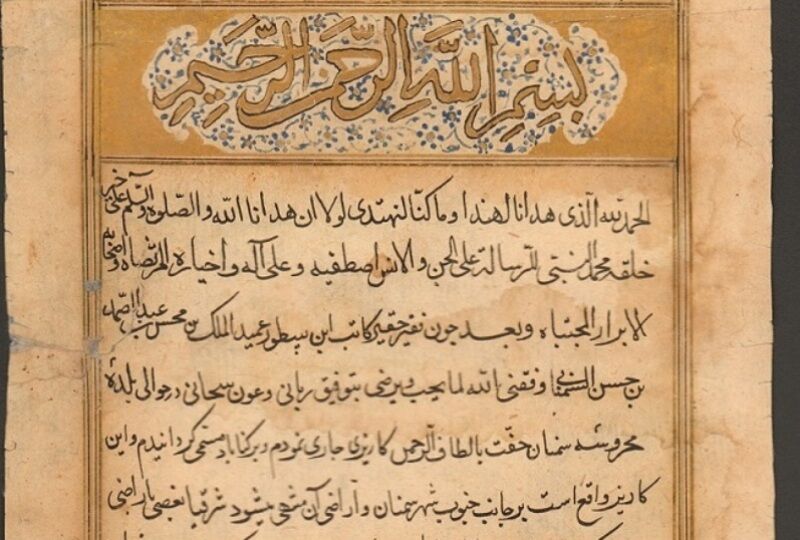 بسم الله الرحمن الرحیم
الحمد لله الذی هدانا لهذا وما کنا لنهتدی لولا ان هدانا الله والصلوة والسلم علی خیر
خلقه محمد للرسالة علی الجن والانس اصطفیه وعلی آله واخیاره المرتضاه واصحابه
الابرار المجتباه وبعد جون فقیر حقیر کاتب این سطور عمید الملک بن محسن بن عبد الصمد
بن حسن السمنانی وفقنی الله لما یحب ویرضی بتوفیق ربانی وعون سبحانی در حوالی بلدهٔ
محروسه سمنان حفت بالطاف الرحمن کاریزی جاری نمودم و برکناباد مسمی کردانیدم واین
کاریز واقع است بر جانب جنوب شهر سمنان و اراضی آن منتهی میشود شرقیا بعضی باراضی